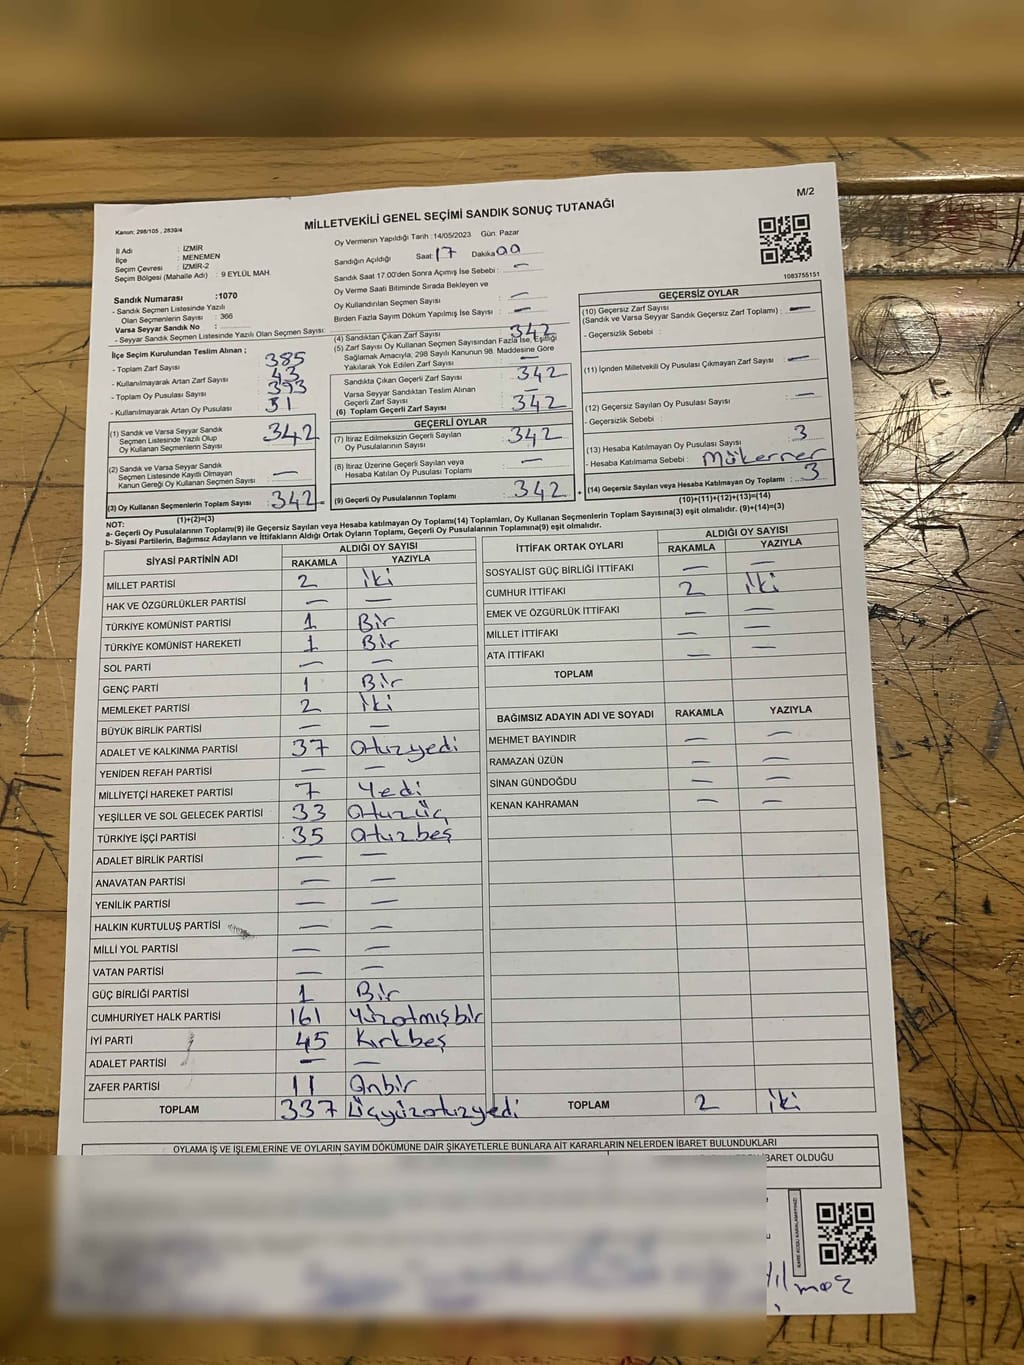 M/2
MİLLETVEKİLİ GENEL SEÇİMİ SANDIK SONUÇ TUTANAĞI
Kanun: 298/105 , 2839/4
İl Adı : İZMİR
İlçe : MENEMEN
Seçim Çevresi : İZMİR-2
Seçim Bölgesi (Mahalle Adı) : 9 EYLÜL MAH.
Oy Vermenin Yapıldığı Tarih :14/05/2023 Gün: Pazar
Sandığın Açıldığı Saat: 17 Dakika 00
Sandık Saat 17:00'den Sonra Açımış İse Sebebi : —
Oy Verme Saati Bitiminde Sırada Bekleyen ve
Oy Kullandırılan Seçmen Sayısı : —
Birden Fazla Sayım Döküm Yapılmış İse Sayısı : —
1083755151
Sandık Numarası :1070
- Sandık Seçmen Listesinde Yazılı
Olan Seçmenlerin Sayısı : 366
Varsa Seyyar Sandık No :
- Seyyar Sandık Seçmen Listesinde Yazılı Olan Seçmen Sayısı:
İlçe Seçim Kurulundan Teslim Alınan ;
- Toplam Zarf Sayısı : 385
- Kullanılmayarak Artan Zarf Sayısı : 43
- Toplam Oy Pusulası Sayısı :
- Kullanılmayarak Artan Oy Pusulası : 31
(1) Sandık ve Varsa Seyyar Sandık
Seçmen Listesinde Yazılı Olup
Oy Kullanan Seçmenlerin Sayısı : 342
(2) Sandık ve Varsa Seyyar Sandık
Seçmen Listesinde Kayıtlı Olmayan
Kanun Gereği Oy Kullanan Seçmen Sayısı : —
(3) Oy Kullanan Seçmenlerin Toplam Sayısı : 342 =
(1)+(2)=(3)
(4) Sandıktan Çıkan Zarf Sayısı : 342
(5) Zarf Sayısı Oy Kullanan Seçmen Sayısından Fazla İse, Eşitliği
Sağlamak Amacıyla, 298 Sayılı Kanunun 98. Maddesine Göre
Yakılarak Yok Edilen Zarf Sayısı : —
Sandıkta Çıkan Geçerli Zarf Sayısı : 342
Varsa Seyyar Sandıktan Teslim Alınan
Geçerli Zarf Sayısı : —
(6) Toplam Geçerli Zarf Sayısı : 342
GEÇERLİ OYLAR
(7) İtiraz Edilmeksizin Geçerli Sayılan
Oy Pusulalarının Sayısı : 342
(8) İtiraz Üzerine Geçerli Sayılan veya
Hesaba Katılan Oy Pusulası Toplamı : —
(9) Geçerli Oy Pusulalarının Toplamı : 342 +
GEÇERSİZ OYLAR
(10) Geçersiz Zarf Sayısı
(Sandık ve Varsa Seyyar Sandık Geçersiz Zarf Toplamı) : —
- Geçersizlik Sebebi :
(11) İçinden Milletvekili Oy Pusulası Çıkmayan Zarf Sayısı : —
(12) Geçersiz Sayılan Oy Pusulası Sayısı : —
- Geçersizlik Sebebi :
(13) Hesaba Katılmayan Oy Pusulası Sayısı : 3
- Hesaba Katılmama Sebebi : Mükerrer
(14) Geçersiz Sayılan veya Hesaba Katılmayan Oy Toplamı : 3
(10)+(11)+(12)+(13)=(14)
NOT:
a- Geçerli Oy Pusulalarının Toplamı(9) ile Geçersiz Sayılan veya Hesaba katılmayan Oy Toplamı(14) Toplamları, Oy Kullanan Seçmenlerin Toplam Sayısına(3) eşit olmalıdır. (9)+(14)=(3)
b- Siyasi Partilerin, Bağımsız Adayların ve İttifakların Aldığı Ortak Oyların Toplamı, Geçerli Oy Pusulalarının Toplamına(9) eşit olmalıdır.
SİYASİ PARTİNİN ADI ALDIĞI OY SAYISI
RAKAMLA YAZIYLA
MİLLET PARTİSİ 2 iki
HAK VE ÖZGÜRLÜKLER PARTİSİ — —
TÜRKİYE KOMÜNİST PARTİSİ 1 Bir
TÜRKİYE KOMÜNİST HAREKETİ 1 Bir
SOL PARTİ — —
GENÇ PARTİ 1 Bir
MEMLEKET PARTİSİ 2 iki
BÜYÜK BİRLİK PARTİSİ — —
ADALET VE KALKINMA PARTİSİ 37 Otuzyedi
YENİDEN REFAH PARTİSİ — —
MİLLİYETÇİ HAREKET PARTİSİ 7 Yedi
YEŞİLLER VE SOL GELECEK PARTİSİ 33 Otuzüç
TÜRKİYE İŞÇİ PARTİSİ 35 Otuzbeş
ADALET BİRLİK PARTİSİ — —
ANAVATAN PARTİSİ — —
YENİLİK PARTİSİ — —
HALKIN KURTULUŞ PARTİSİ — —
MİLLİ YOL PARTİSİ — —
VATAN PARTİSİ — —
GÜÇ BİRLİĞİ PARTİSİ 1 Bir
CUMHURİYET HALK PARTİSİ 161 Yüzatmışbir
İYİ PARTİ 45 Kırkbeş
ADALET PARTİSİ — —
ZAFER PARTİSİ 11 Onbir
TOPLAM 337 Üçyüzotuzyedi
İTTİFAK ORTAK OYLARI ALDIĞI OY SAYISI
RAKAMLA YAZIYLA
SOSYALİST GÜÇ BİRLİĞİ İTTİFAKI — —
CUMHUR İTTİFAKI 2 iki
EMEK VE ÖZGÜRLÜK İTTİFAKI — —
MİLLET İTTİFAKI — —
ATA İTTİFAKI — —
TOPLAM
BAĞIMSIZ ADAYIN ADI VE SOYADI RAKAMLA YAZIYLA
MEHMET BAYINDIR — —
RAMAZAN ÜZÜN — —
SİNAN GÜNDOĞDU — —
KENAN KAHRAMAN — —
TOPLAM 2 iki
OYLAMA İŞ VE İŞLEMLERİNE VE OYLARIN SAYIM DÖKÜMÜNE DAİR ŞİKAYETLERLE BUNLARA AİT KARARLARIN NELERDEN İBARET BULUNDUKLARI
BARET OLDUĞU